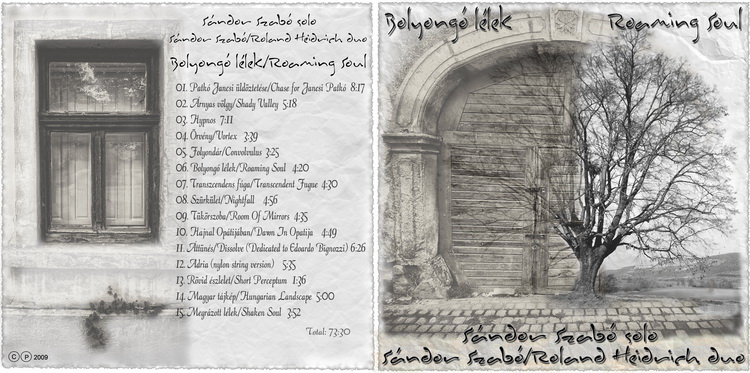 Sándor Szabó solo
Sándor Szabó/Roland Heidrich duo
Bolyongó lélek/Roaming Soul
01. Patkó Jancsi üldöztetése/Chase for Jancsi Patkó 8:17
02. Árnyas völgy/Shady Valley 5:18
03. Hypnos 7:11
04. Örvény/Vortex 3:39
05. Folyondár/Convolvulus 3:25
06. Bolyongó lélek/Roaming Soul 4:20
07. Transzcendens fúga/Transcendent Fugue 4:30
08. Szürkület/Nightfall 4:56
09. Tükörszoba/Room Of Mirrors 4:35
10. Hajnal Opátijában/Dawn In Opatija 4:49
11. Áttűnés/Dissolve (Dedicated to Edoardo Bignozzi) 6:26
12. Adria (nylon string version) 5:35
13. Rövid észlelet/Short Perceptum 1:36
14. Magyar tájkép/Hungarian Landscape 5:00
15. Megrázott lélek/Shaken Soul 3:52
Total: 73:30
© ℗ 2009
Bolyongó lélek Roaming Soul
Sándor Szabó solo
Sándor Szabó/Roland Heidrich duo